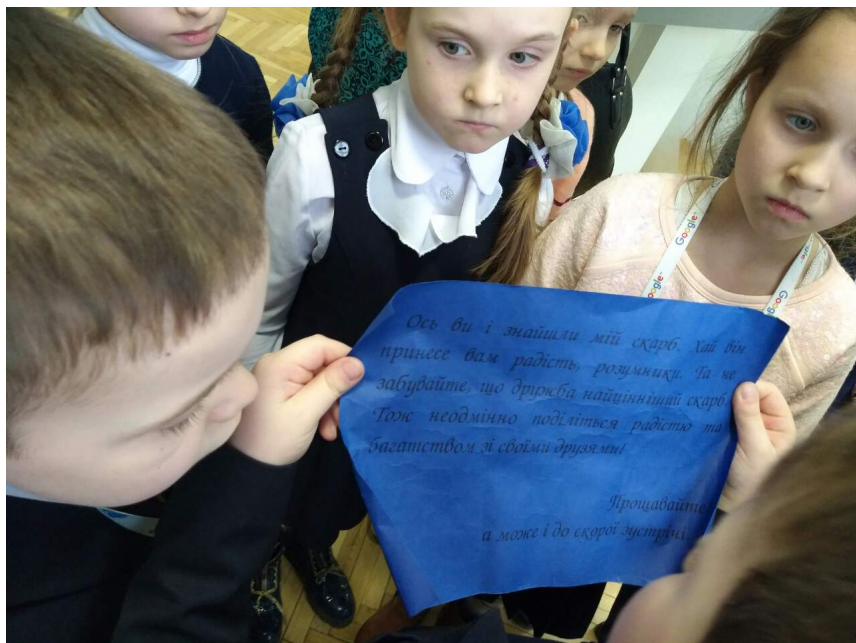 Ось ви і знайшли мій скарб. Хай він
принесе вам радість, розумники. Та не
забувайте, що дружба найцінніший скарб.
Тож неодмінно поділіться радістю та
багатством зі своїми друзями!
Прощавайте,
а може і до скорої зустрічі...
Google
Google
Google